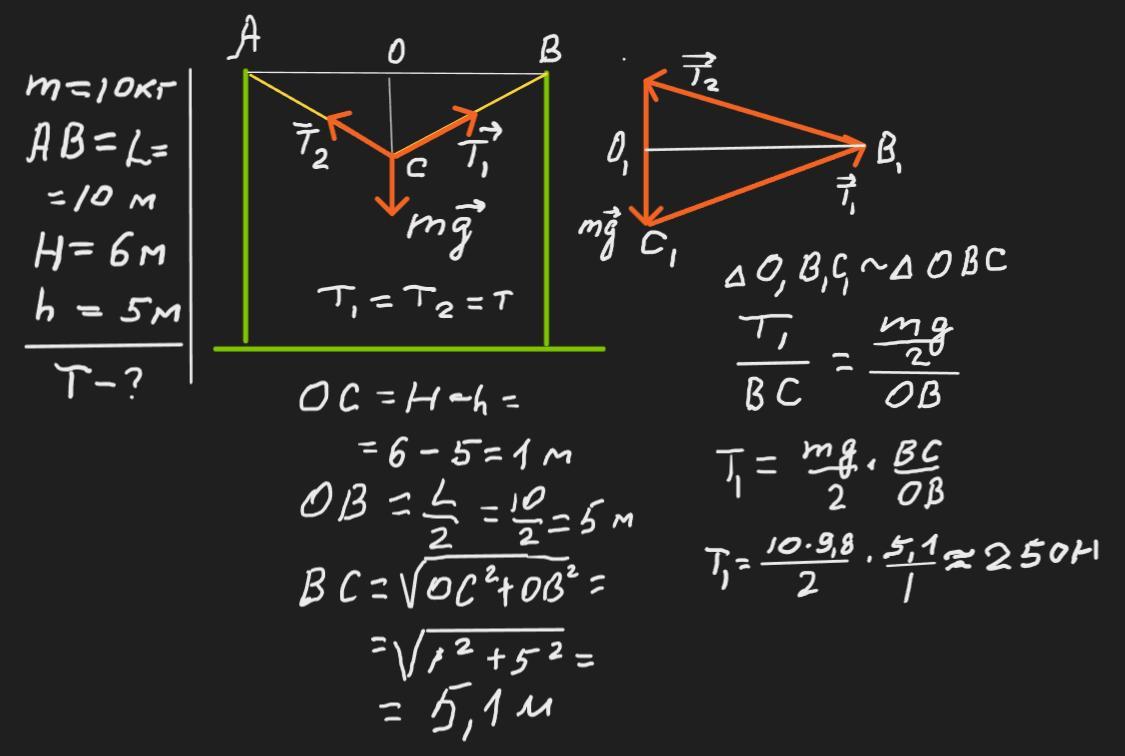 m=10кг
AB=L=
=10 м
H=6м
h=5м
T-?
A O B
T⃗₂ C T⃗₁
mg⃗
T₁=T₂=T
OC=H-h=
=6-5=1м
OB=L/2=10/2=5м
BC=√(OC²+OB²)=
=√(1²+5²)=
=5,1м
T⃗₂
O₁ B₁
T⃗₁
mg⃗ C₁
△O₁B₁C₁~△OBC
T₁/BC=(mg/2)/OB
T₁=mg/2·BC/OB
T₁=10·9,8/2·5,1/1≈250H